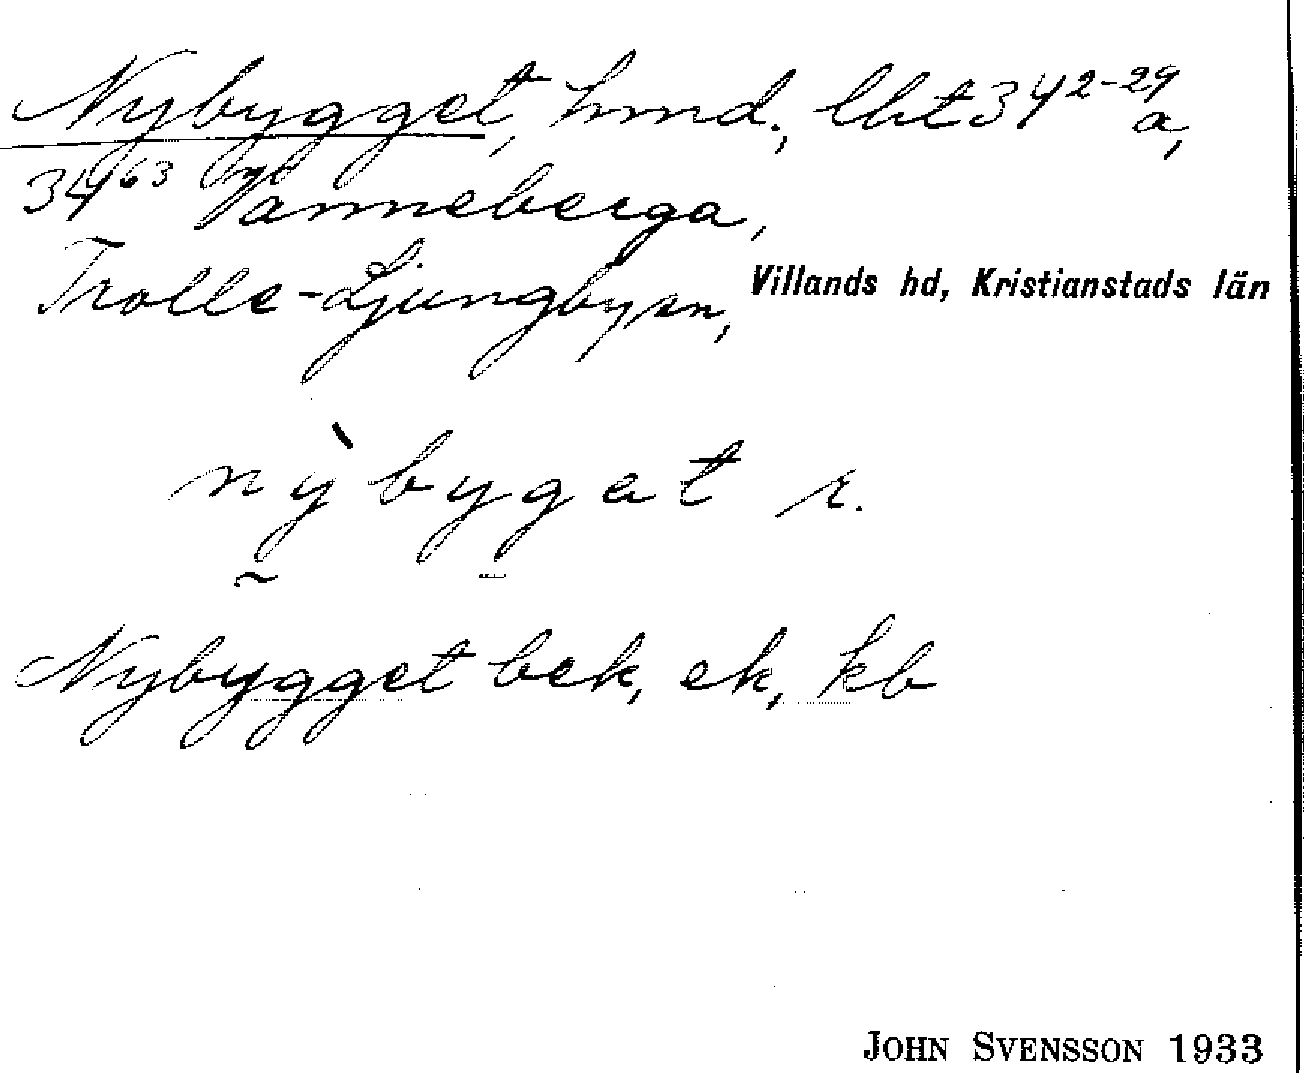 Nybygget, hmd., lht 34 2-29 a,
34 63 byt Vanneberga,
Trolle-Ljungby sn, Villands hd, Kristianstads län
nỳbygat r.
Nybygget bek, ek, kb
JOHN SVENSSON 1933